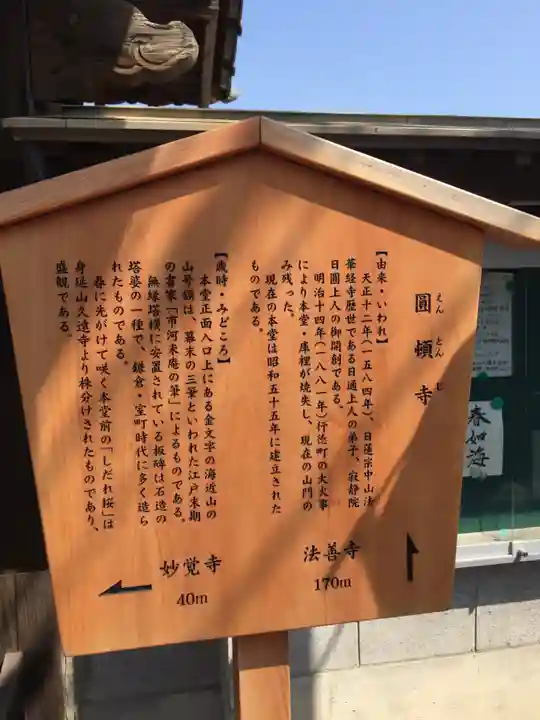 圓頓寺
えん とん じ
【由来・いわれ】
天正十二年(一五八四年)、日蓮宗中山法
華経寺歴世である日通上人の弟子、寂静院
日圓上人の御開創である。
明治十四年(一八八一年)行徳町の大火事
により本堂・庫裡が焼失し、現在の山門の
み残った。
現在の本堂は昭和五十五年に建立された
ものである。
【歳時・みどころ】
本堂正面入口上にある金文字の海近山の
山号額は、幕末の三筆といわれた江戸末期
の書家「市河米庵の筆」によるものである。
無縁塔横に安置されている板碑は石造の
塔婆の一種で、鎌倉・室町時代に多く造ら
れたものである。
春に先がけて咲く本堂前の「しだれ桜」は
身延山久遠寺より株分けされたものであり、
盛観である。
法善寺
170m
妙覚寺
40m
春如海